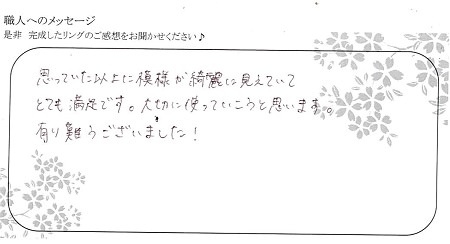 職人へのメッセージ
是非 完成したリングのご感想をお聞かせください♪
思っていた以上に模様が綺麗に見えていて
とても満足です。大切に使っていこうと思います。
有り難うございました！